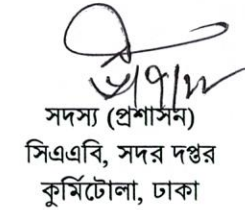 সদস্য (প্রশাসন)
সিএএবি, সদর দপ্তর
কুর্মিটোলা, ঢাকা